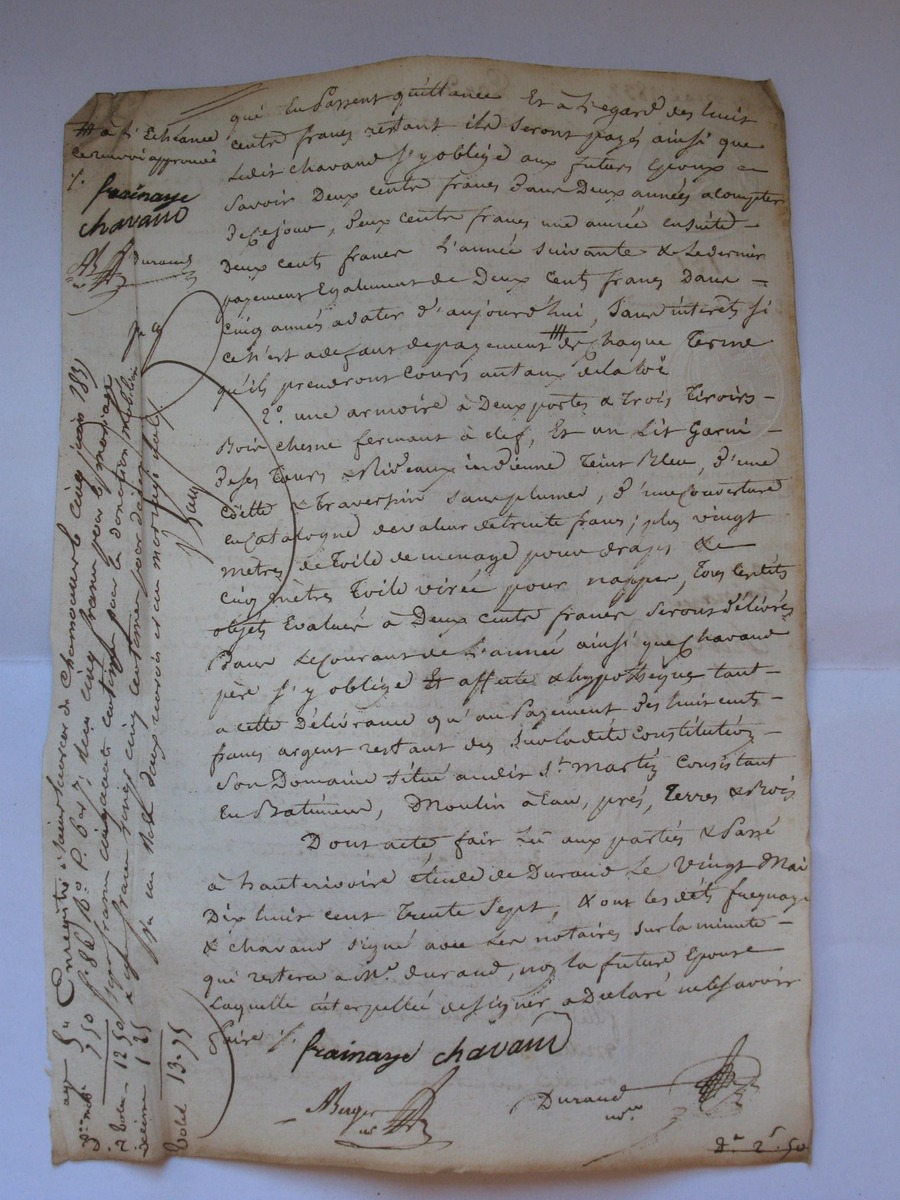 # à l'Echéance
ce renvoi approuvé
/.
frainaye
chavand
Durand
que En Passent quittance Et à L'egard des huit
cents francs restant ils seront payés ainsi que
Ledit chavand s'y oblige aux futurs Epoux
Savoir Deux cents francs Dans Deux années a Compter
De Ce jour, Deux cents francs une année ensuite -
Deux cents francs L'année suivante & Le dernier
payement Egalement de Deux Cent francs Dans -
Cinq années a dater d'aujourd'hui, Sans interets si
ce n'est a defaut de payement # de chaque Terme
qu'ils prendront Cours au taux de la Loi
2º. une armoire à Deux portes & Trois Tiroirs -
Bois chesne fermant à clef, Et un Lit Garni -
De ses Tours & Rideaux indienne Teint Bleu, D'une
Coëtte & Traversin sans plume, D'une Couverture
en Catalogne de valeur de trente francs; plus vingt
mètres de Toile de menage pour draps & de
Cinq mètres Toile virée pour nappes, Tous lesdits
objets Evalués à Deux Cents francs seront Délivrés
Dans Le Courant de L'année ainsi que Chavand
père s'y oblige Et affecte & hypothèque tant -
a cette Délivrance qu'au Payement Des huit cents -
francs argent restant dus sur la dite Constitution -
Son Domaine situé audit St. Martin Consistant
En Batiments, Moulin à Eau, prés, Terres & Bois
Dont acte fait Lu aux parties & Passé
à hauterivoire étude de Durand Le vingt Mai
Dix huit cent Trente Sept, & ont les dits fraynaye
& chavand signé avec Les notaires sur la minute -
qui restera a Me. durand, non la future Epouse
Laquelle interpellée de signer a Déclaré ne le savoir
faire /.
frainaye chavand
Berger
nre
Durand
nre
Dn 2f. 50
Enregistré à Saint Laurent de Chamousset le cinq juin 1837
fo. 86 Ro. C. 6 & 7; Reçu cinq francs pour le mariage
sept francs cinquante centimes pour la donation mobilière
& un franc vingt cinq centimes pour décime
7 50
12 50
décime 1 25
Total 13.75